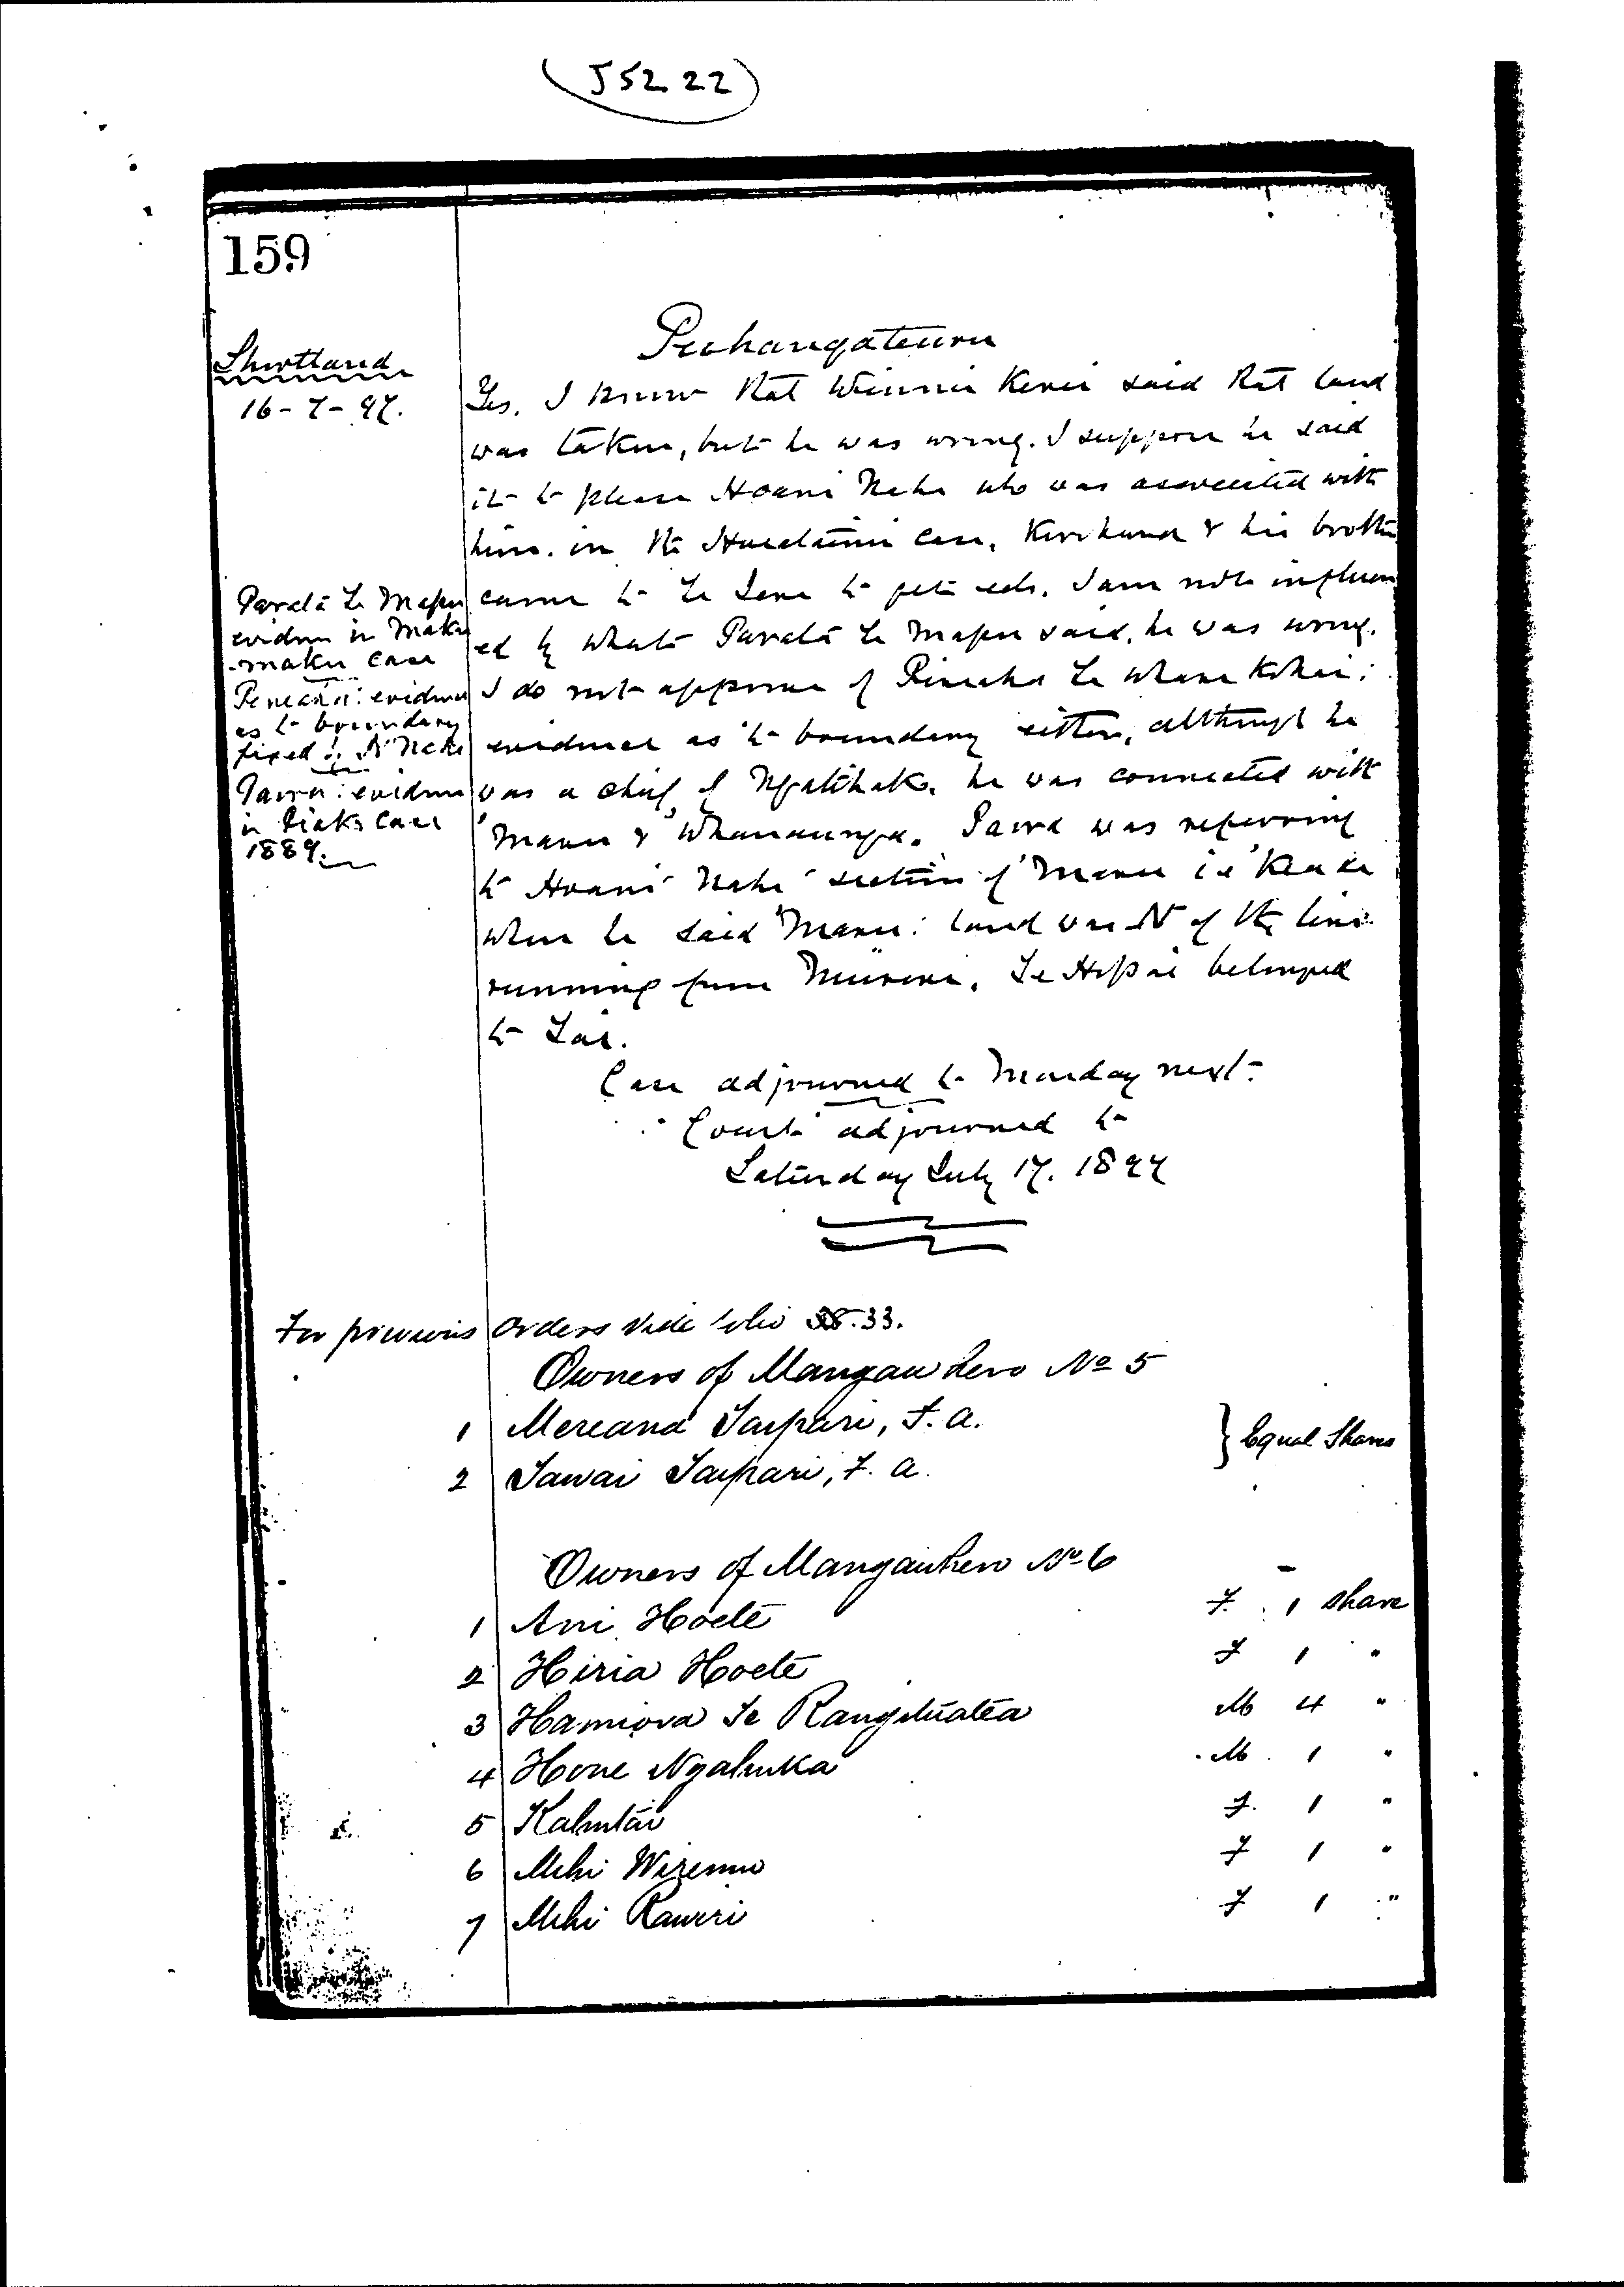 (J 52 22)
159
Puhangateuru
Shortland
16-7-97.
Yes. I know that Wiremu Kerei said that land
was taken, but he was wrong. I suppose he said
it to please Hoani Nahe who was associated with
him in the case. & his brother
came to Te to get eels. I am not influenc
Parata Te Mapu
evidence in Maku
-maku case
ed by what Parata Te Mapu said, he was wrong.
I do not approve of Te
evidence
as to boundary
fixed by N' Nahe
evidence as to boundary either, although he
was a chief of Ngatihako. he was connected with
evidence
in Piako case
1889.
'Maru & 'Whanaunga. was referring
to Hoani Nahe' section of 'Maru i e
when he said 'Maru: land was N of the line
running from. Te belonged
to Tai.
Case adjourned to Monday next-
Court adjourned to
Saturday July 17. 1897
For previous Orders vide folio 33.
Owners of Mangawhero No 5
1 Mereana Taipari, F. a.
2 Tawai Taipari, F. a.
} Equal Shares
Owners of Mangawhero No 6
1 Ani Hoete F. 1 share
2 Hiria Hoete F 1 "
3 Hamiora Te Rangituatea M 4 "
4 Hone Ngahuka M. 1 "
5 Kahutai F. 1 "
6 Mihi Wiremu F 1 "
7 Mihi Raweri F 1 "